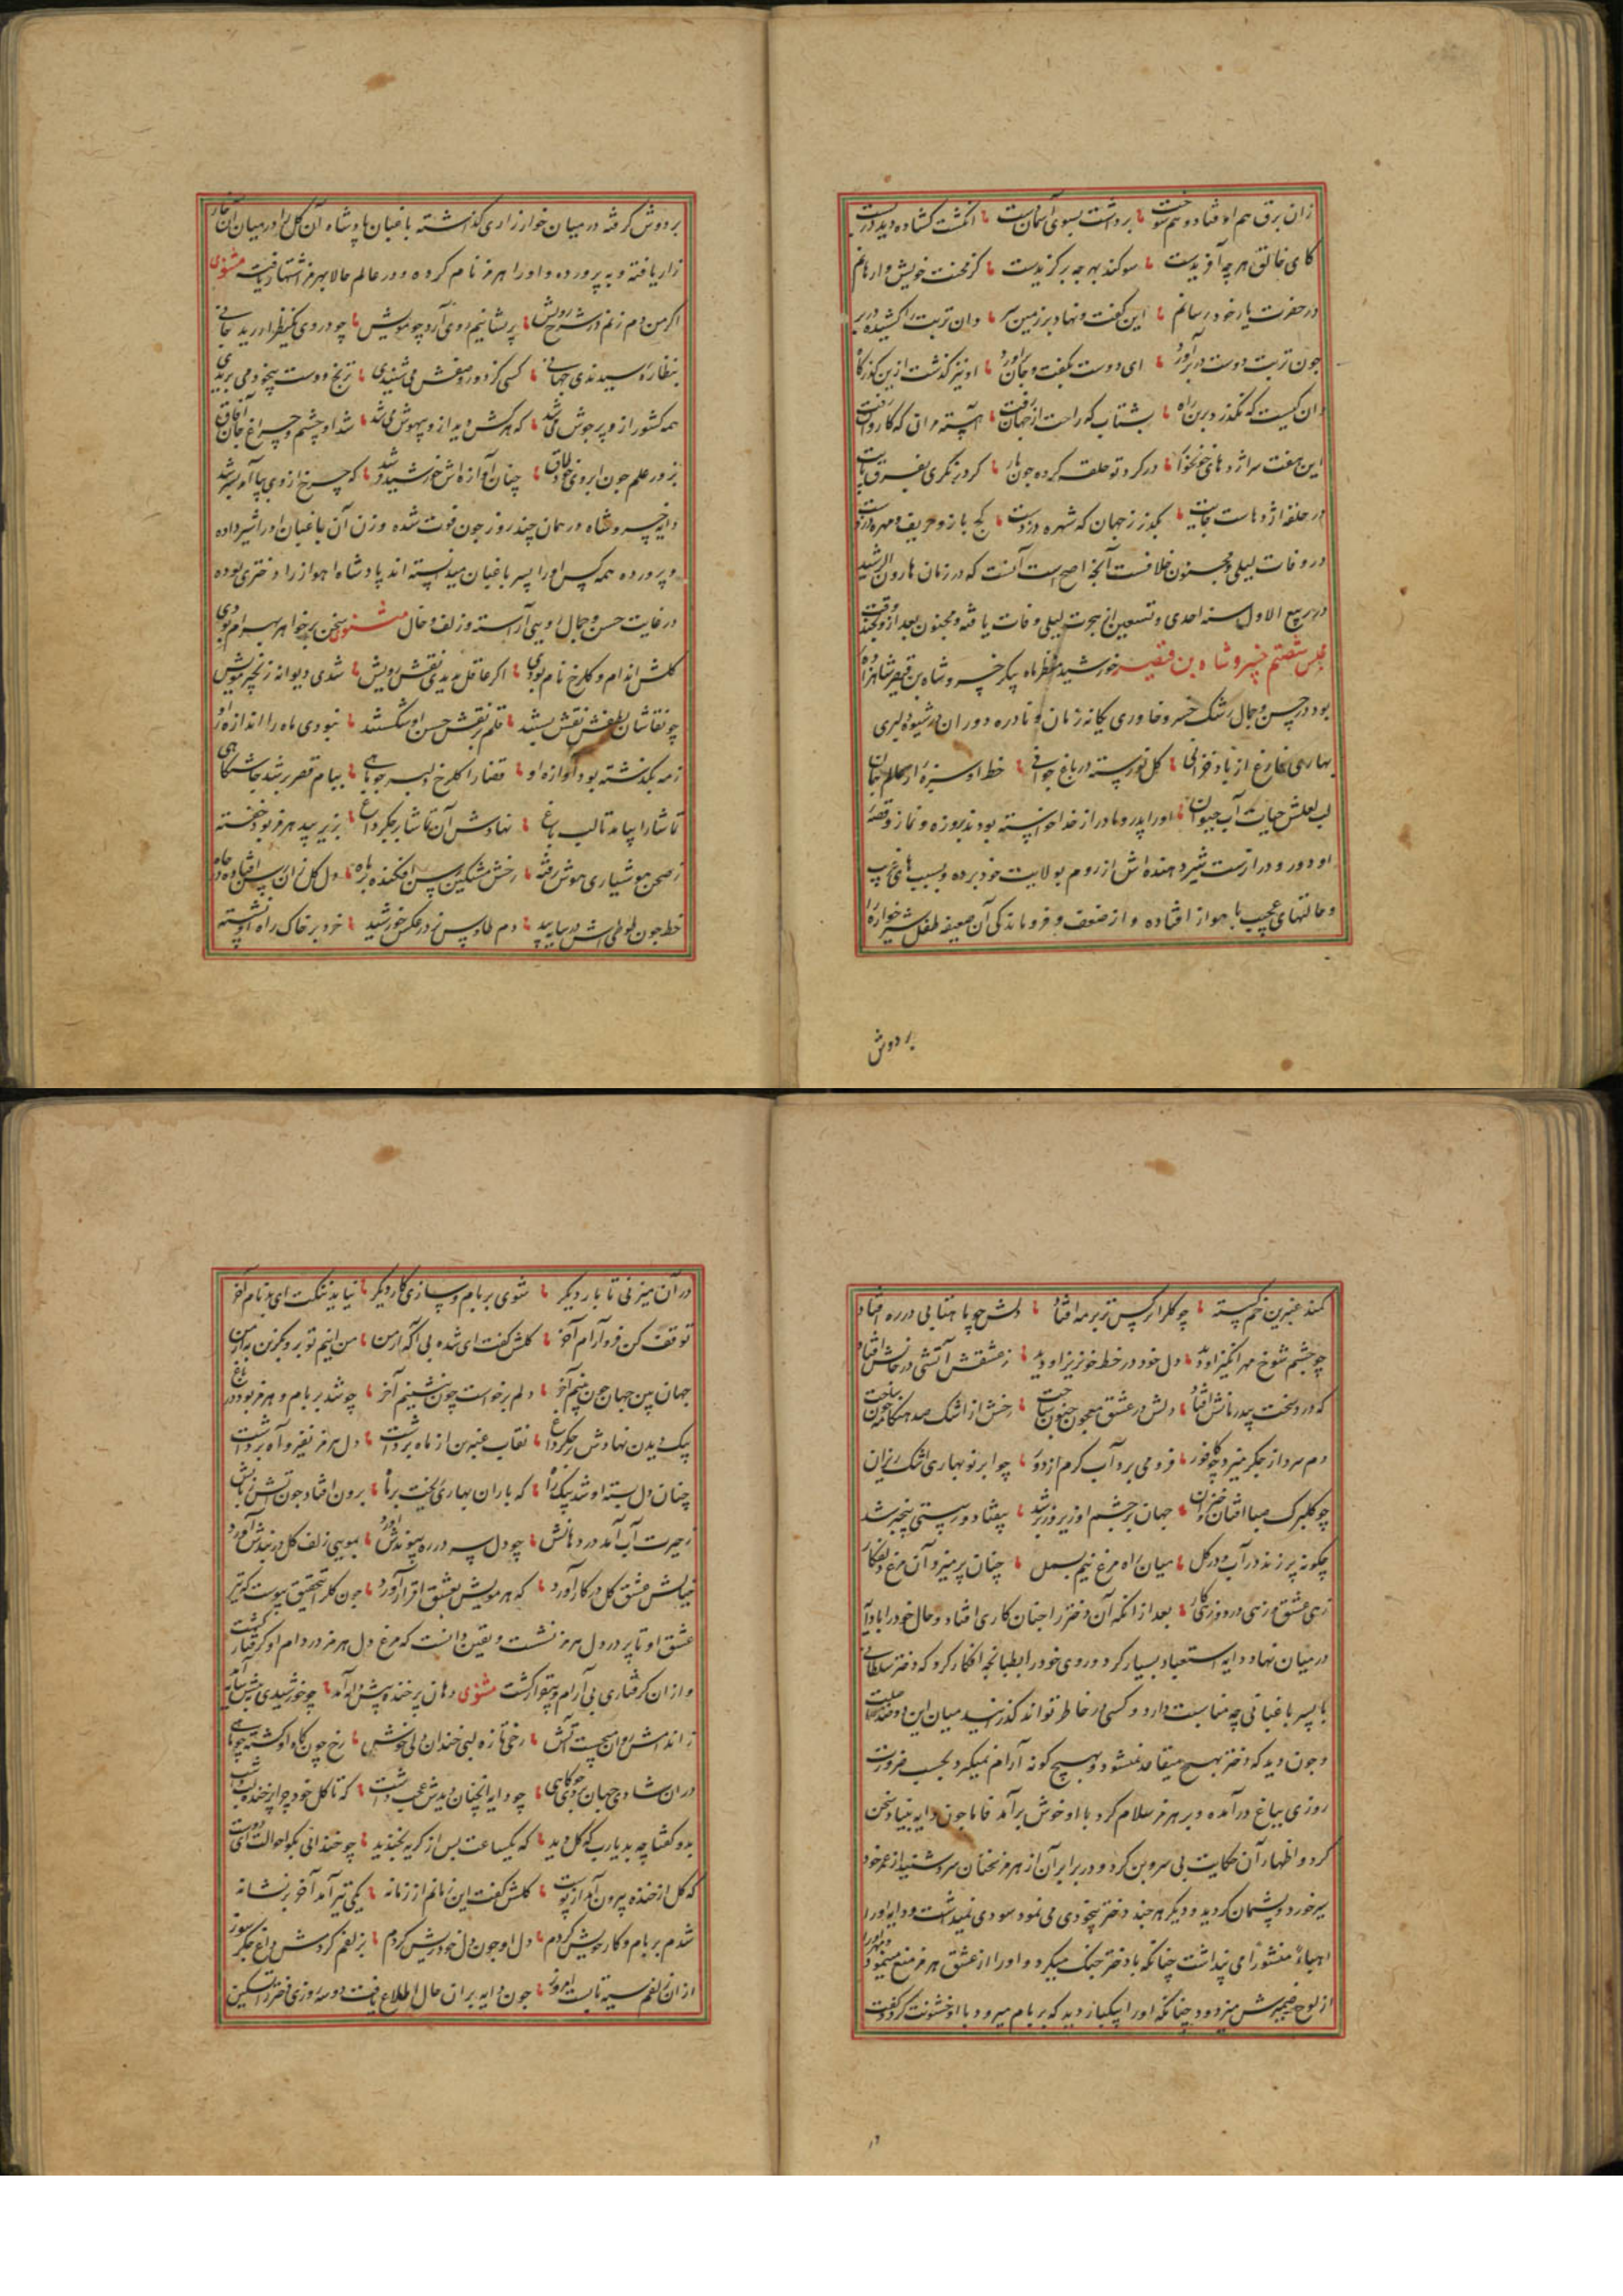 زان برق هم اوفتاد و هم سوخت برداشت بسوی آسمان دست انگشت کشاده دیده در بست
کای خالق هر چه آفریدست سوکند بهر چه برکزیدست کز محنت خویش وارهانم
در حضرت یار خود رسانم این کفت و نهاد بر زمین سر وان تربت را کشیده در بر
چون تربت دوست در بر آورد ای دوست بکفت و جان بر آورد او نیز کذشت ازین کذرکاه
ان کیست که نکذرد برین راه بشتاب که راحت از جهان رفت آهسته مران که کاروان رفت
این هفت سر اژدهای خونخوار در کرد تو حلقه کرده چون مار کر در نکری بفرق پایت
در حلقه اژدهاست جایت بکذر ز جهان که شهره دزدست کج باز و حریف و مهره دزدست
در وفات لیلی و مجنون خلافست آنچه اصح است آنست که در زمان هارون الرشید
در ربیع الاول سنه احدی و تسعین از هجرت لیلی وفات یافته و مجنون بعد ازو
مجلس شصتم خسرو شاه بن قیصر خورشید منظر ماه پیکر خسرو شاه بن قیصر شاهزاده
بود در حسن و جمال رشک خسرو خاوری یکانه زمان و نادره دوران در شیوه دلبری
بهاری فارغ از باد خزانی کل نورسته در باغ جوانی خط او سبزه از
لب لعلش حیات آب حیوان اورا پدر و مادر از خدا خواسته بودند بروزه و نماز و قصه
او دور و درازست شیر دهنده اش از روم بولایت خود برده و بسبب های غریب
و حالتهای عجیب با هواز افتاده و از ضعف و فروماندکی آن ضعیفه طفل شیرخواره را
بر دوش
بر دوش کرفته در میان خوار زاری کذاشته باغبان پادشاه آن کل را در میان آن خار
زار یافته و به پرورده و اورا هرمز نام کرده و در عالم حالا بهرمز اشتهار یافت مثنوی
اکر من دم زنم در شرح رویش پریشانیم روی آرد چو مویش چو در روی یکنظر
بنظاره رسیدندی جهانی کسی کز دور وصفش می شنیدی ترنج و دست بیخود می بریدی
همه کشور ازو پر جوش می شد که هر کش دید ازو بیهوش می شد شد او چشم و چراغ جان آفاق
بزور علم چون ابروی خود طاق چنان آوازه اش خورشید وش شد که چرخ ازوی
دایه خسرو شاه در همان چند روز چون فوت شده و زن آن باغبان اورا شیر داده
و پرورده همه کس اورا پسر باغبان میدانسته اند پادشاه اهواز را دختری بوده
در غایت حسن و جمال اوبی آراسته وز زلف و خال مثنوی سخن بر خواهر بهرام بودی
کلش اندام و کلرخ نام بودی اکر عاقل بدیدی نقش رویش شدی دیوانه زنجیر مویش
چو نقاشان لطفش نقش بستند قلم بر نقش حسن او شکستند نبودی ماه را اندازه او
ز مه بکذشته بود آوازه او قضا را کلرخ دلبر چو ماهی ببام قصر بر شد چاشتکاهی
تماشا را بیامد تا لب باغ نهادش آن تماشا بر جکر داغ بزیر بید هرمز بود خفته
ز صحن هوشیاری هوش رفته رخش مشکین رسن افکنده بر ماه دل کل زان رسن افتاده در چاه
خط چون طوطی اش در سایه بید دم طاوس در عکس خورشید خرد بر خاک راه او نشسته
کمند عنبرین خم کسته چو کلرا نرکس تر بر مه افتاد دلش چو ماهتابی در ره افتاد
چو چشم شوخ مهر انکیز او دید دل خود در خط خونریز او دید ز عشقش آتشی در جانش افتاد
که در دو سخت بیدرمانش افتاد دلش در عشق معجون جنون ساخت رخش از اشک صد هنکامه خون ساخت
دم سرد از جکر میزد چو کافور فرو می برد آب کرم از دور چو ابر نوبهاری اشک ریزان
چو کلبرک صبا افتان و خیزان جهان بر چشم او زیر و زبر شد بیفتاد و ز هستی بیخبر شد
چکونه پر زند در آب و در کل میان راه مرغ نیم بسمل چنان پر میزد آن مرغ دلفکار
زهی عشق و زهی درد و زهی کار بعد از انکه آن دختر را چنان کاری افتاد و حال خود را با دایه
در میان نهاد دایه استبعاد بسیار کرد و روی خود را بطپانچه افکار کرد که دختر سلطانی
با پسر باغبانی چه مناسبت دارد و کسی در خاطر تواند کذرانید میان این دو ضد
و چون دید که دختر بهیچ متقاعد نمیشود و بهیچ کونه آرام نمیکیرد بحسب ضرورت
روزی بباغ درآمده و بر هرمز سلام کرد با او خوش برآمد فاما چون دایه بنیاد سخن
کرد و اظهار آن حکایت بی سر و بن کرد و در برابر آن از هرمز سخنان سرد شنید از عمر خود
سیر خورد و پشیمان کردید و دیکر هر چند دختر بیخودی می نمود سودی نمیداشت و دایه اورا
هباء منثورا می پنداشت چنانکه با دختر جنک میکرد و اورا از عشق هرمز منع مینمود
از لوح ضمیرش میزدود چنانکه اورا یکبار دید که بر بام میرود با او خشونت کرد و کفت
در آن میزنی تا بار دیکر شوی بر بام و سازی کار دیکر نیاید ننکت ای بدنام آخر
توقف کن فرو آرام آخر کلش کفت ای شده بی آکه از من من اینم تو برو بکزین به از من
جهان بین جهان چون بینم آخر دلم برخواست چون بنشینم آخر چو شد بر بام و هرمز بود در باغ
بیک دیدن نهادش بر جکر داغ نقاب عنبرین از ماه برداشت دل هرمز نفیر و آه برداشت
چنان دل بسته او شد بیکراه که باران بهاری ریخت بر ماه برون افتاد چون آتش
ز حیرت آب آمد در دهانش چو دل در ره پیوندش آورد بمویی زلف کل در بندش آورد
خیالش عشق کل در کار آورد که هر مویش بعشق اقرار آورد چون کلرا تحقیق پیوست که تیر
عشق او تا پر در دل هرمز نشست و یقین دانست که مرغ دل هرمز در دام او کرفتار کشت
و از ان کرفتاری بی آرام و بیقرار کشت مثنوی دهان پر خنده پیش دایه آمد چو خورشیدی
رخی تازه لبی خندان دلی خوش رخ چون کاو او کشته چو ماهی
در ان شادی جهان چو دایه انچنان دیدش عجب داشت که تا کل خود چرا پر خنده لب داشت
بدو کفتا چه بد یارب که کل دید که یکساعت بس از کریه بخندید چو خندانی بکو احوالت ای دوست
که کل از خنده بیرون آمد از پوست کلش کفت این زمانم از زمانه یکی تیر آمد آخر بر نشانه
شدم بر بام و کار خویش کردم دل او چون دل خود ریش کردم بزلفم کردمش داغ جکر سوز
از ان زلفم سیه تابست امروز چون دایه بران حال اطلاع یافت دو سه روزی دختر را تسکین